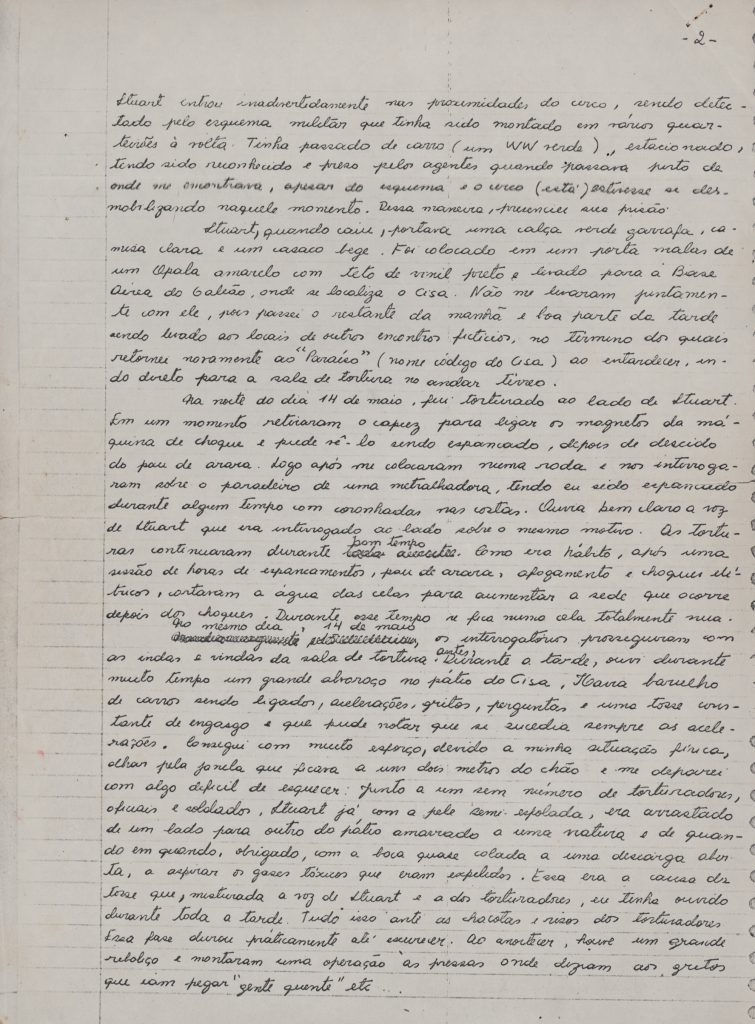 -2-
Stuart entrou inadvertidamente nas proximidades do cerco, sendo detec-
tado pelo esquema militar que tinha sido montado em vários quar-
teirões à volta. Tinha passado de carro (um WW verde), estacionado,
tendo sido reconhecido e preso pelos agentes quando passava perto de
onde me encontrava, apesar do esquema e o cerco (está) estivesse se des-
mobiligando naquele momento. Dessa maneira, presenciei sua prisão
Stuart, quando caiu, portava uma calça verde garrafa, ca-
misa clara e um casaco bege. Foi colocado em um porta malas de
um Opala amarelo com teto de vinil preto e levado para a Base
Aérea do Galeão, onde se localiza o Cisa. Não me levaram juntamen-
te com ele, pois passei o restante da manhã e boa parte da tarde
sendo levado aos locais de outros encontros fictícios, no término dos quais
retornei novamente ao "Paraíso" (nome código do Cisa) ao entardecer, in-
do direto para a sala de tortura no andar térreo.
Na noite do dia 14 de maio, fui torturado ao lado de Stuart.
Em um momento retiraram o capuz para ligar os magnetos da má-
quina de choque e pude vê-lo sendo espancado, depois de descido
do pau de arara. Logo após me colocaram numa roda e nos interroga-
ram sobre o paradeiro de uma metralhadora, tendo eu sido espancado
durante algum tempo com coronhadas nas costas. Ouvia bem claro a voz
de Stuart que era interrogado ao lado sobre o mesmo motivo. As tortu-
ras continuaram durante bom tempo. Como era hábito, após uma
sessão de horas de espancamentos, pau de arara, afogamento e choques elé-
tricos, cortaram a água das celas para aumentar a sede que ocorre
depois dos choques. Durante esse tempo se fica numa cela totalmente nua.
No mesmo dia, 14 de maio, os interrogatórios prosseguiram com
as indas e vindas da sala de tortura. antes, Durante a tarde, ouvi durante
muito tempo um grande alvoroço no pátio do Cisa, Havia barulho
de carros sendo ligados, acelerações, gritos, perguntas e uma tosse cons-
tante de engasgo e que pude notar que se sucedia sempre as acele-
rações. Consegui com muito esforço, devido a minha situação física,
olhar pela janela que ficava a uns dois metros do chão e me deparei
com algo difícil de esquecer: junto a um sem número de torturadores,
oficiais e soldados, Stuart já com a pele semi-esfolada, era arrastado
de um lado para outro do pátio amarrado a uma viatura e de quan-
do em quando, obrigado, com a boca quase colada a uma descarga aber
ta, a aspirar os gases tóxicos que eram expelidos. Essa era a causa da
tosse que, misturada a voz de Stuart e a dos torturadores, eu tinha ouvido
durante toda a tarde. Tudo isso ante as chacotas e risos dos torturadores
Essa fase durou práticamente até escurecer. Ao anoitecer, houve um grande
reboliço e montaram uma operação às pressas onde diziam aos gritos
que iam pegar "gente quente" etc...